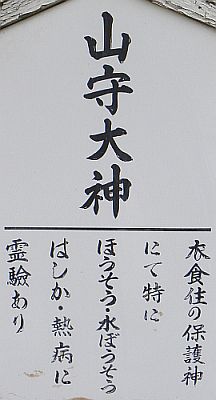 山守大神
衣食住の保護神
にて特に
ほうそう・水ぼうそう
はしか・熱病に
霊験あり